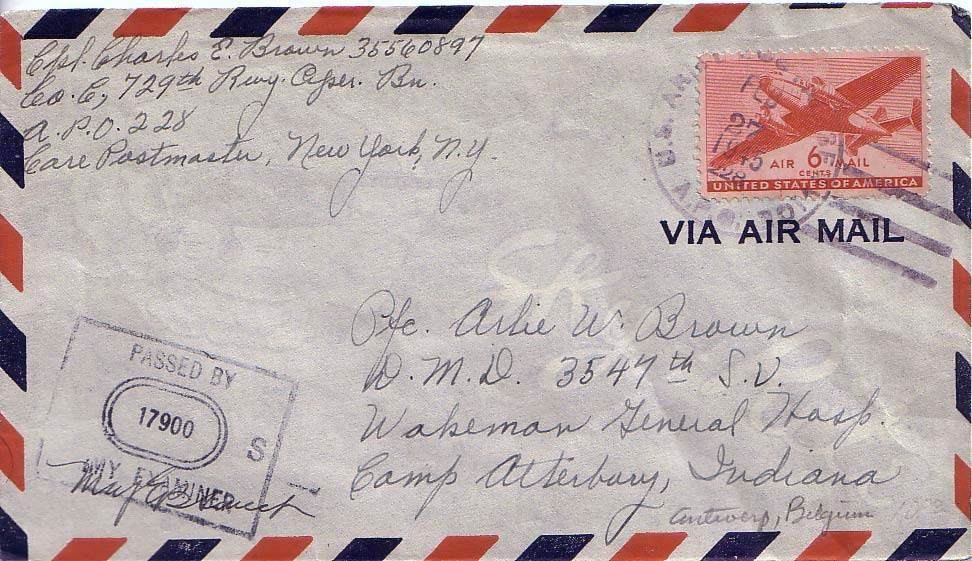 Cpl. Charles E. Brown 35560897
Co. C, 729th Rwy. Oper. Bn.
A.P.O. 228
Care Postmaster, New York, N.Y.
U.S. ARMY
FEB
27
1945
228
AIR 6 MAIL
CENTS
UNITED STATES OF AMERICA
VIA AIR MAIL
Pfc. Arlie W. Brown
D.M.D. 3547th S.U.
Wakeman General Hosp.
Camp Atterbury, Indiana
Antwerp, Belgium
PASSED BY
17900
S
ARMY EXAMINER